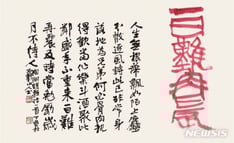 一日難再晨
人生無根蒂飄如陌上塵
分散逐風轉此已非常身
落地爲兄弟何必骨肉親
得歡當作樂斗酒聚比
鄰盛年不重來一日難
再晨及時當勉勵歲
月不待人
NEWSIS